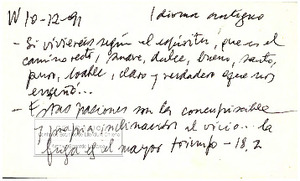 W 10-12-91 Idioma antiguo
- Si vivieréis según el espíritu, que es el
camino recto, suave, dulce, bueno, santo,
puro, loable, claro y verdadero que nos
enseñó...
- Estas pasiones son la concupiscible
y propia inclinación al vicio... la
fuga es el mayor triunfo - 18, 2